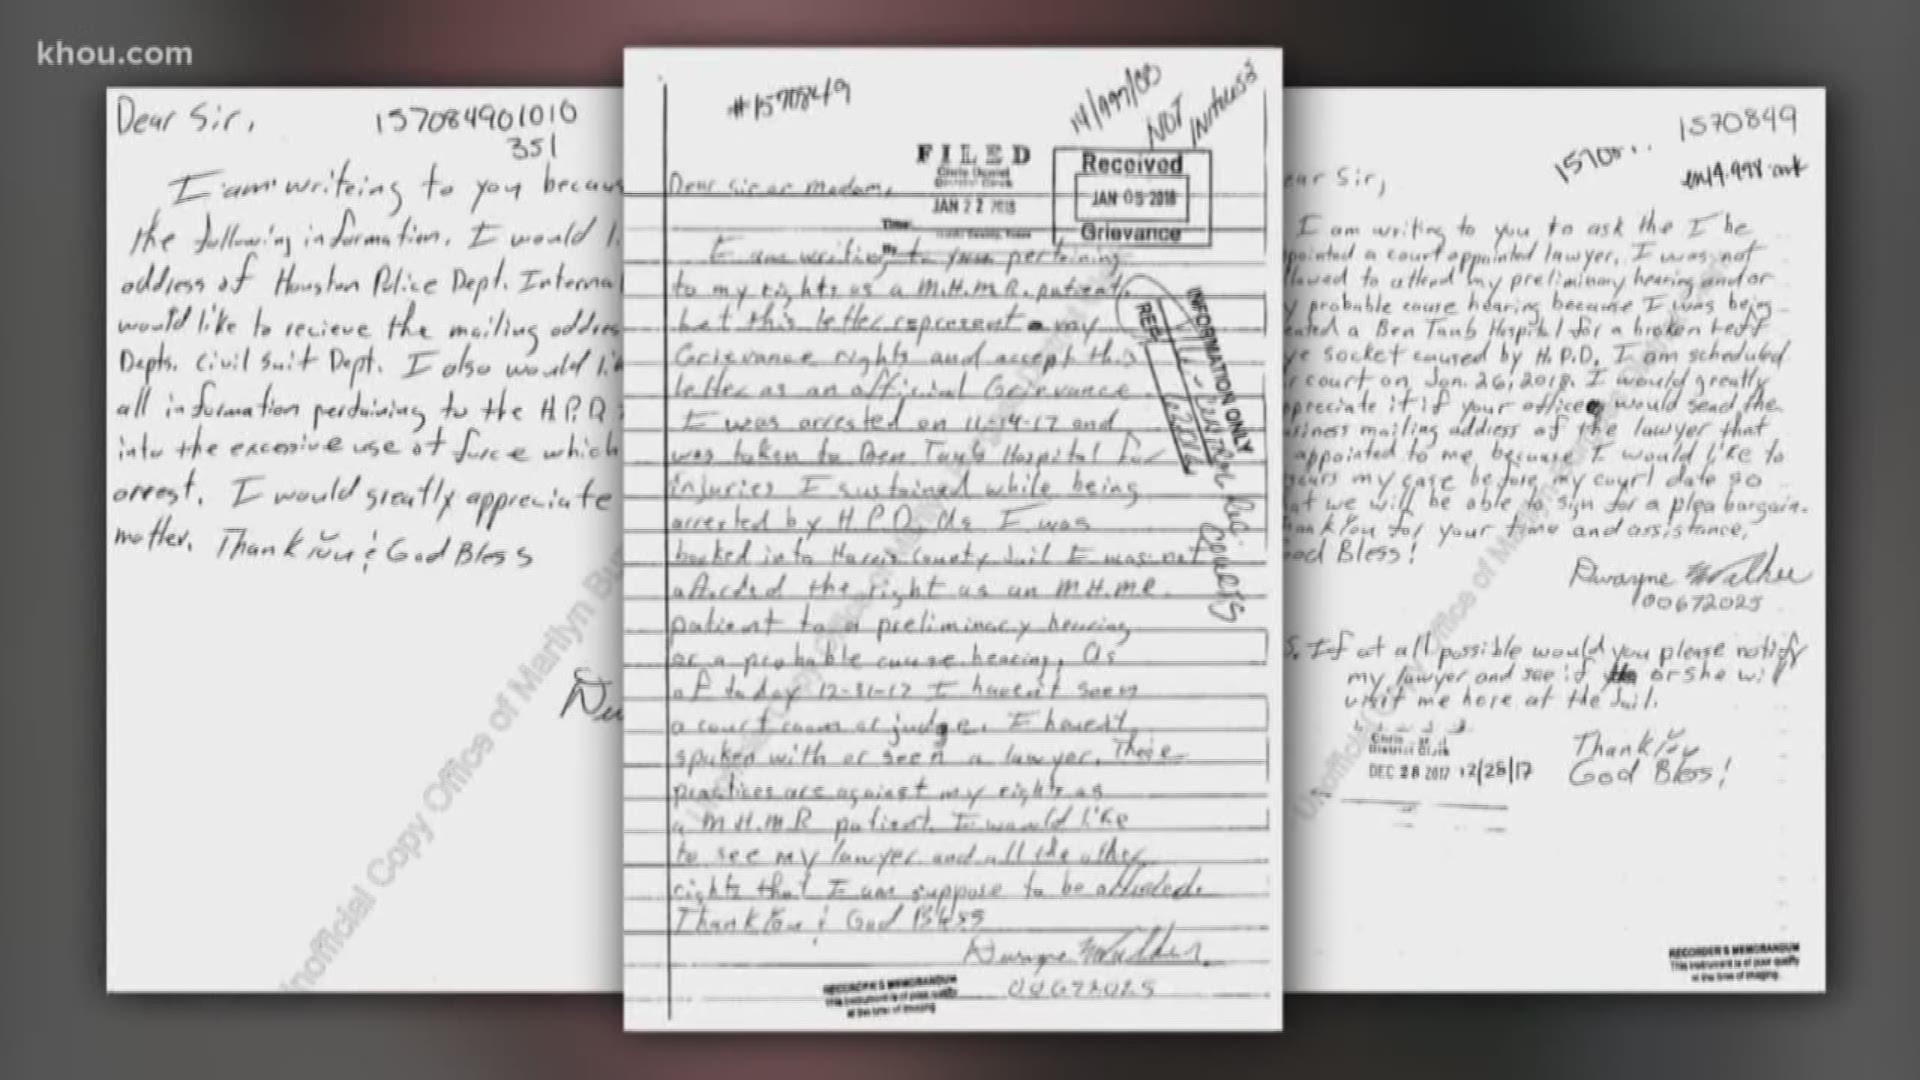 khou.com
Dear Sir,
157084901010
351
I am writeing to you becaus
the following information. I would li
address of Houston Police Dept. Interna
would like to recieve the mailing addres
Depts. Civil Suit Dept. I also would lik
all information perdaining to the H.P.D
into the excessive use of force which
arrest. I would greatly appreciate
matter. Thank You & God Bless
Unofficial Copy Office of Marilyn Bu
#1570849
NOT
Witness
FILED
Chris Daniel
District Clerk
JAN 22 2018
Time:
By
Received
JAN 05 2018
Grievance
INFORMATION ONLY
Dear Sir or Madam,
I am writing to you pertaining
to my rights as a M.H.M.R. patient.
Let this letter represent my
Grievance rights and accept this
letter as an official Grievance.
I was arrested on 11-14-17 and
was taken to Ben Taub Hospital for
injuries I sustained while being
arrested by H.P.D. As I was
booked into Harris County Jail I was not
afforded the right as an M.H.M.R.
patient to a preliminary hearing
or a probable cause hearing. As
of today 12-31-17 I haven't seen
a court room or judge. I havent
spoken with or seen a lawyer. These
practices are against my rights as
a M.H.M.R patient. I would like
to see my lawyer and all the other
rights that I am suppose to be afforded.
Thank You & God Bless
Dwayne Walker
00672025
RECORDER'S MEMORANDUM
This instrument is of poor quality
at the time of imaging
1570849
ear Sir,
I am writing to you to ask the I be
pointed a court appointed lawyer. I was not
lowed to attend my preliminary hearing and/or
y probable cause hearing because I was being
eated a Ben Taub Hospital for a broken left
ye socket caused by H.P.D. I am scheduled
r court on Jan. 26, 2018. I would greatly
preciate it if your office would send the
siness mailing address of the lawyer that
appointed to me because I would like to
my case before my court date so
at we will be able to sign for a plea bargain.
ank You for your time and assistance,
od Bless!
Dwayne Walker
00672025
S. If at all possible would you please notify
my lawyer and see if or she will
visit me here at the Jail.
Thank You
God Bless!
District Clerk
DEC 28 2017 12/28/17
Unofficial Copy Office of Marilyn
RECORDER'S MEMORANDUM
This instrument is of poor quality
at the time of imaging